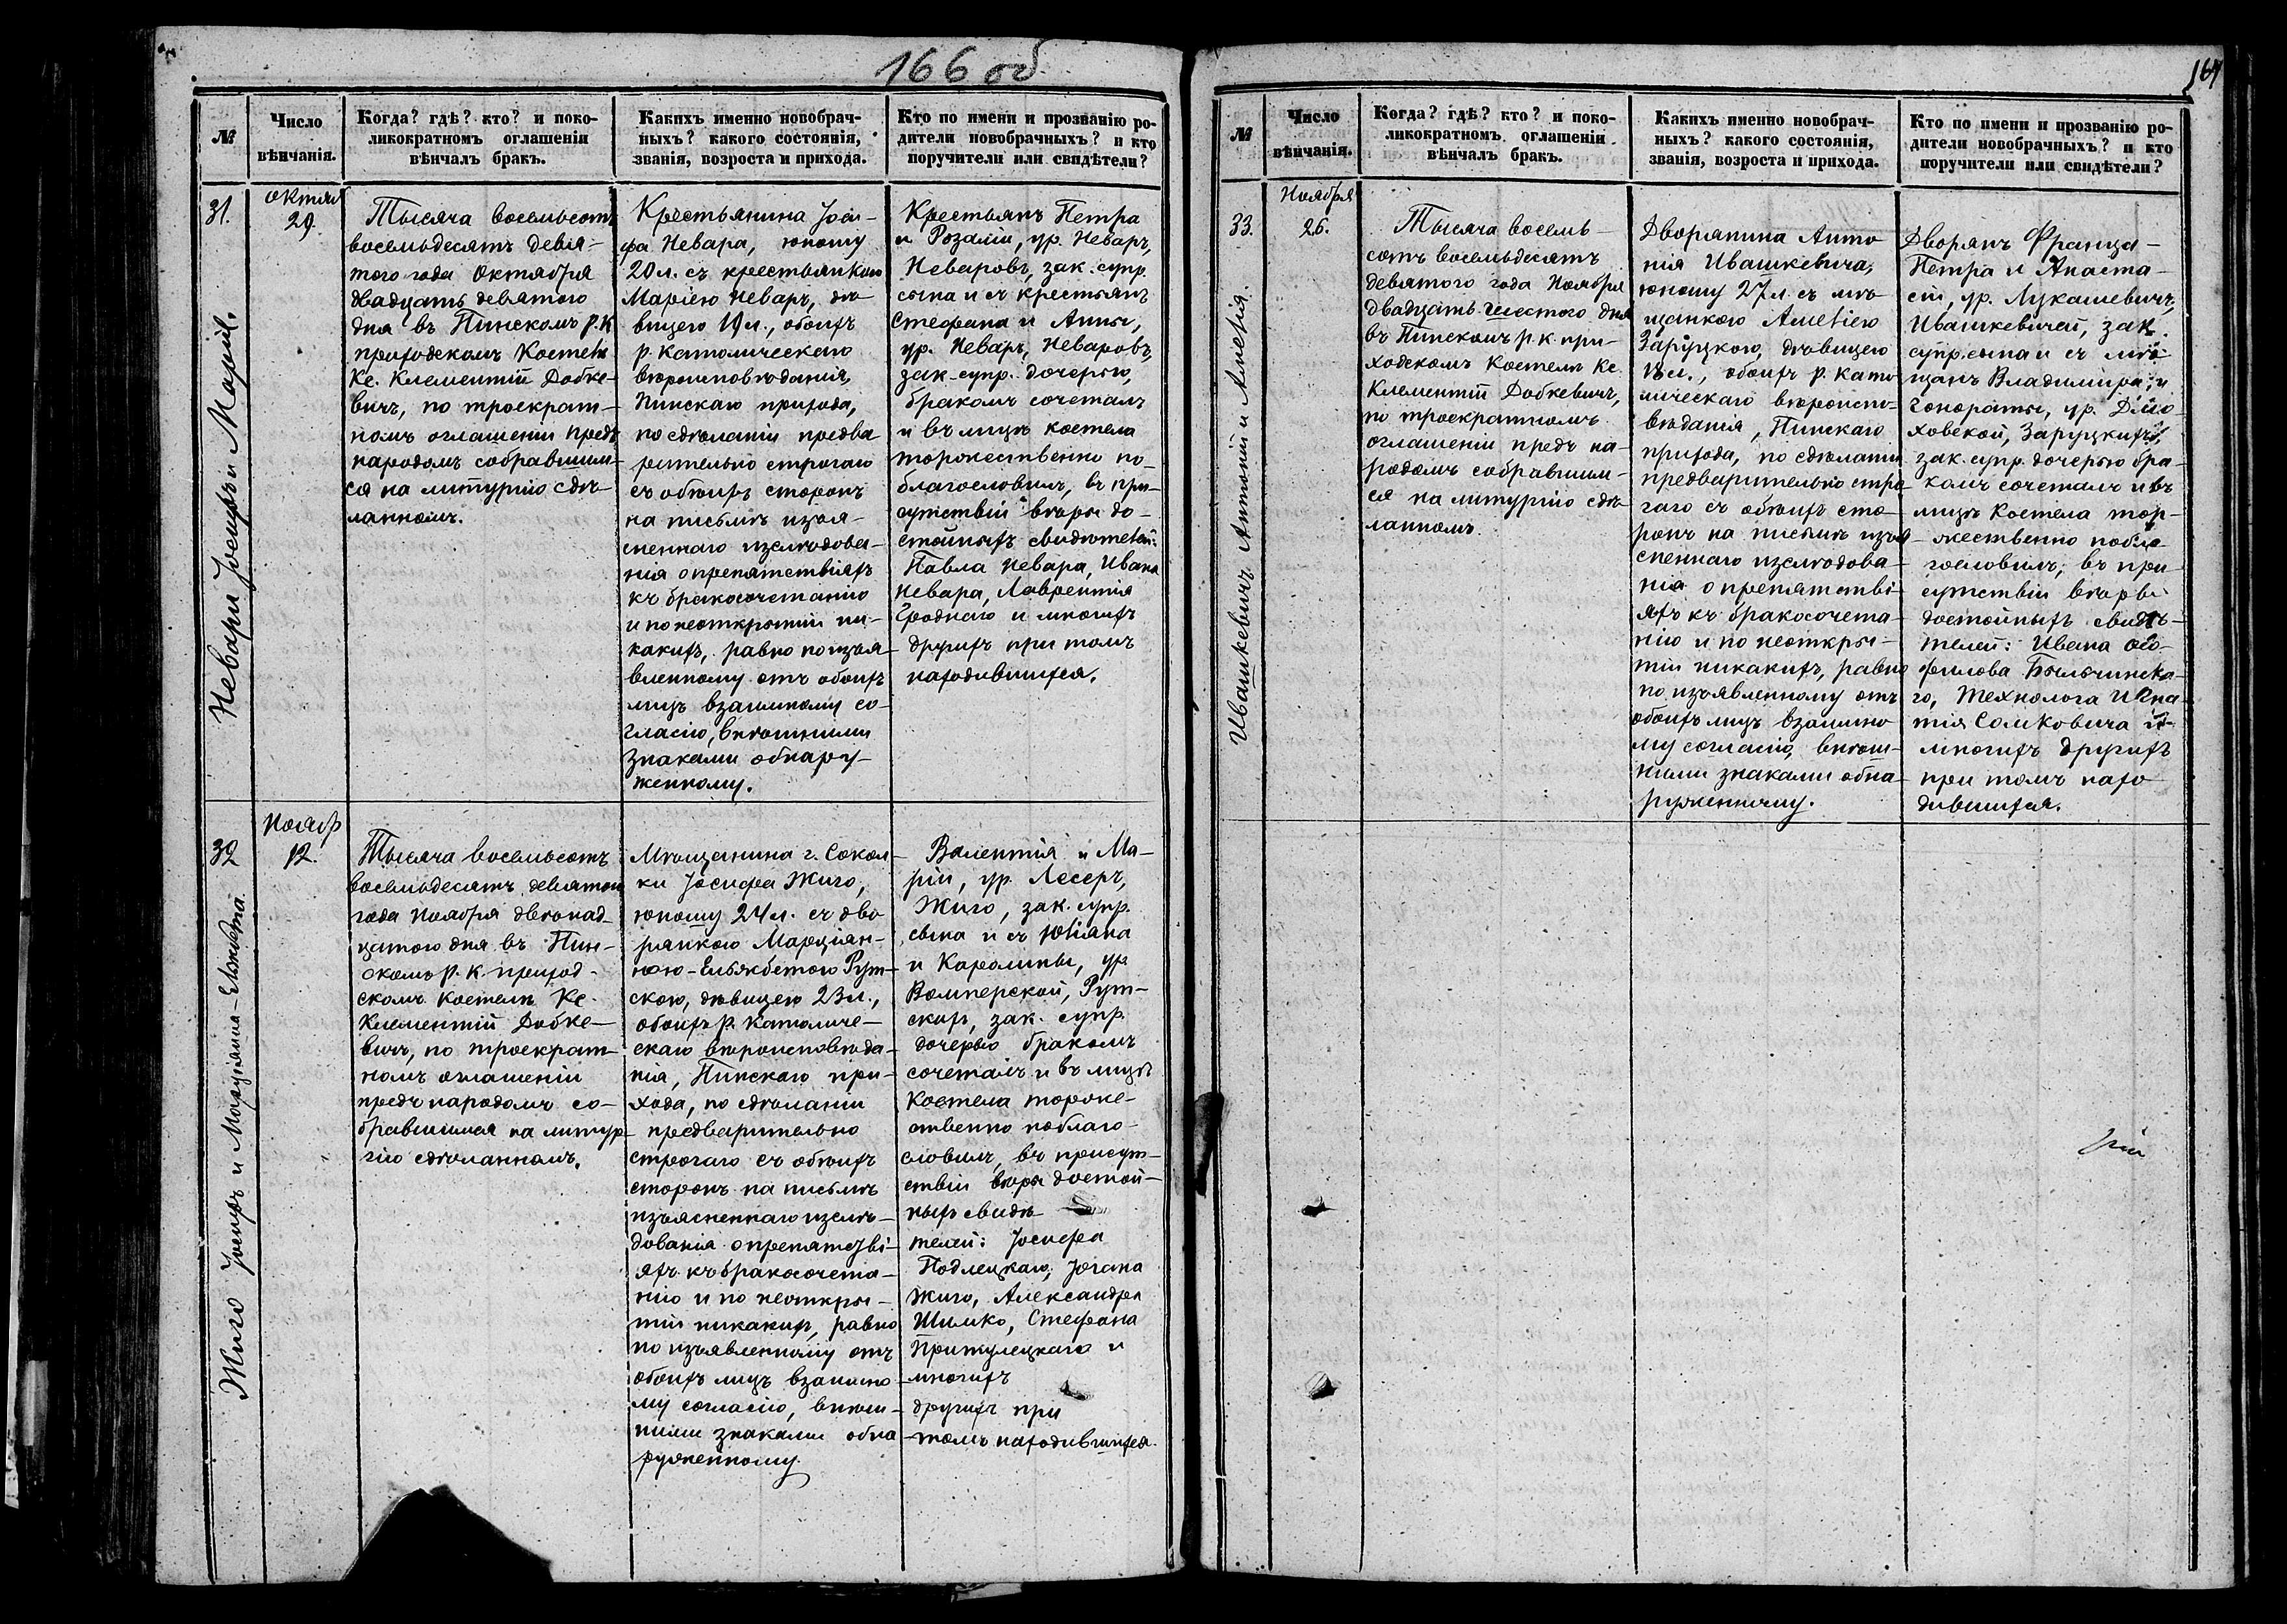 166 об
№
Число
вѣнчанія.
Когда? гдѣ? кто? и поко-
ликократномъ оглашеніи
вѣнчалъ бракъ.
Какихъ именно новобрач-
ныхъ? какого состоянія,
званія, возроста и прихода.
Кто по имени и прозванію ро-
дители новобрачныхъ? и кто
поручители или свидѣтели?
31.
Невары Іосифъ и Марія.
октяб
29.
Тысяча восемьсотъ
восемьдесятъ девя-
того года Октября
двадцать девятого
дня въ Пинскомъ р. к.
приходскомъ Костелѣ
Кс. Клементій Добке-
вичъ, по троекрат-
номъ оглашеніи предъ
народомъ собравшим-
ся на литургію сдѣ-
ланномъ.
Крестьянина Іоси-
фа Невара, юношу
20 л. съ крестьянкою
Маріею Неваръ, дѣ-
вицею 19 л., обоихъ
р. католическаго
вѣроисповѣданія,
Пинскаго прихода,
по сдѣланіи предва
рительно строгаго
съ обѣихъ сторонъ
на письмѣ изъя-
сненнаго изслѣдова-
нія о препятствіяхъ
къ бракосочетанію
и по неоткрытіи ни-
какихъ, равно по изъя-
вленному отъ обоихъ
лицъ взаимному со-
гласію, внѣшними
знаками обнару-
женному.
Крестьянъ Петра
и Розаліи, ур. Неваръ,
Неваровъ, зак. супр.
сына и съ крестьянъ
Стефана и Анны,
ур. Неваръ, Неваровъ,
зак. супр. дочерью,
бракомъ сочеталъ
и въ лицѣ костела
торжественно по-
благословилъ, въ при-
сутствіи вѣры до-
стойныхъ свидѣтелей:
Павла Невара, Ивана
Невара, Лаврентія
Гроднаго и многихъ
другихъ при томъ
находившихся.
32
Жиго Іосифъ и Марціянна-Елизавета
Ноябр
12.
Тысяча восемьсотъ
восемьдесятъ девятого
года Ноября двѣнад-
цатого дня въ Пин-
скомъ р. к. приход-
скомъ костелѣ Кс.
Клементій Добке-
вичъ, по троекрат-
номъ оглашеніи
предъ народомъ со-
бравшимся на литур-
гію сдѣланномъ.
Мѣщанина г. Сокол-
ки Іосифа Жиго,
юношу 24 л. съ дво
рянкою Марціян-
ною-Ельжбетою Рут-
скою, дѣвицею 23 л.,
обоихъ р. католиче-
скаго вѣроисповѣда-
нія, Пинскаго при-
хода, по сдѣланіи
предварительно
строгаго съ обѣихъ
сторонъ на письмѣ
изъясненнаго изслѣ-
дованія о препятстві-
яхъ къ бракосочета-
нію и по неоткры-
тіи никакихъ, равно
по изъявленному отъ
обоихъ лицъ взаимно
му согласію, внѣш-
ними знаками обна
руженному.
Валентія и Ма-
ріи, ур. Лесеръ,
Жиго, зак. супр.
сына и съ Юліана
и Каролины, ур.
Вамперской, Рут-
скихъ, зак. супр.
дочерью бракомъ
сочеталъ и въ лицѣ
костела торже-
ственно поблаго-
словилъ, въ присут-
ствіи вѣры достой-
ныхъ свидѣ
телей: Іосифа
Подлецкаго, Іогана
Жиго, Александра
Шимко, Стефана
Притулецкаго и
многихъ
другихъ при
томъ находившихся.
№
Число
вѣнчанія.
Когда? гдѣ? кто? и поко-
ликократномъ оглашеніи
вѣнчалъ бракъ.
Какихъ именно новобрач-
ныхъ? какого состоянія,
званія, возроста и прихода.
Кто по имени и прозванію ро-
дители новобрачныхъ? и кто
поручители или свидѣтели?
33.
Ивашкевичъ Антоній и Амелія.
Ноября
26.
Тысяча восемь-
сотъ восемьдесятъ
девятого года Ноября
двадцать шестого дня
въ Пинскомъ р. к. при-
ходскомъ Костелѣ Кс.
Клементій Добкевичъ,
по троекратномъ
оглашеніи предъ на-
родомъ собравшим-
ся на литургію сдѣ-
ланномъ.
Дворянина Анто
нія Ивашкевича,
юношу 27 л. съ мѣ-
щанкою Амеліею
Заруцкою, дѣвицею
18 л., обоихъ р. като-
лическаго вѣроиспо-
вѣданія, Пинскаго
прихода, по сдѣланіи
предварительно стро
гаго съ обѣихъ сто-
ронъ на письмѣ изъя-
сненнаго изслѣдова-
нія о препятстві-
яхъ къ бракосочета-
нію и по неоткры-
тіи никакихъ, равно
по изъявленному отъ
обоихъ лицъ взаимно
му согласію, внѣш-
ними знаками обна-
руженному.
Дворянъ Франца-
Петра и Анаста-
сіи, ур. Лукашевичъ,
Ивашкевичей, зак.
супр. сына и съ мѣ-
щанъ Владиміра и
Гонораты,
Заруцкихъ,
зак. супр. дочерью бра-
комъ сочеталъ и въ
лицѣ Костела тор-
жественно побла-
гословилъ, въ при
сутствіи вѣры
достойныхъ свидѣ-
телей: Ивана
го, Технолога Игна-
тія Сомковича и
многихъ другихъ
при томъ нахо
дившихся.